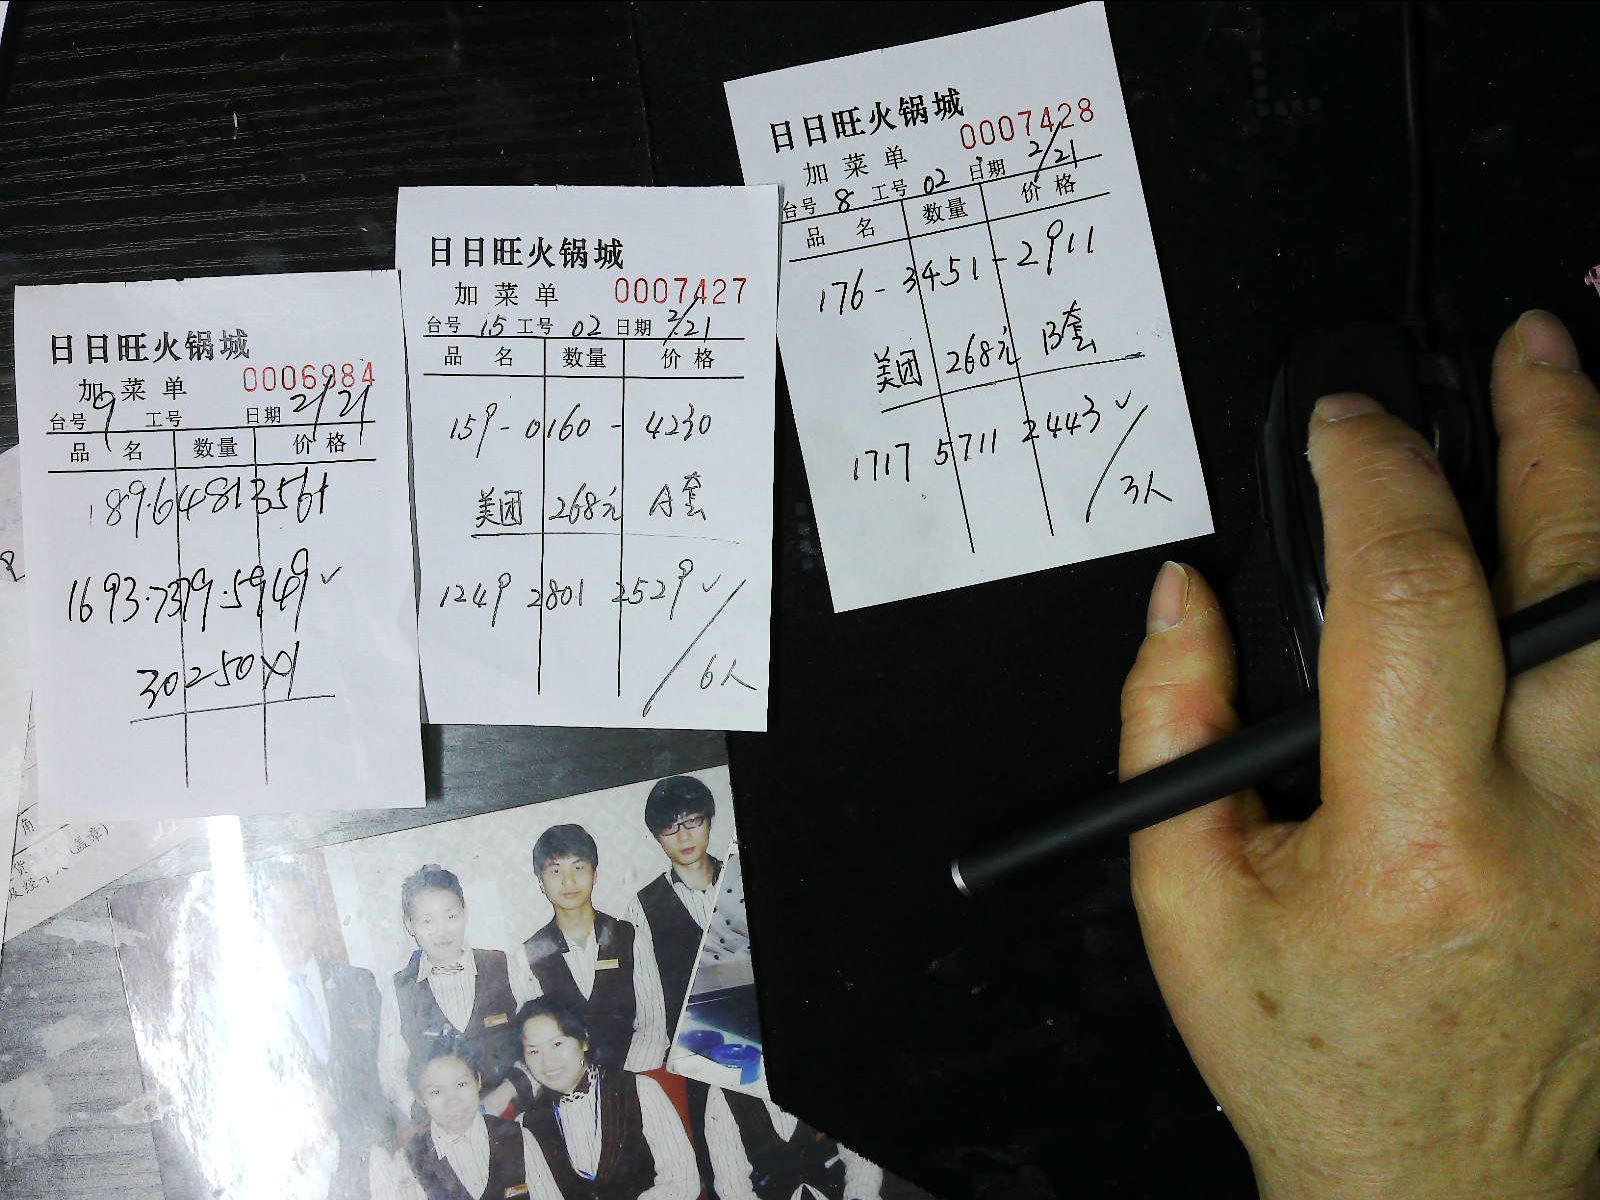 日日旺火锅城
加菜单 0006984
台号 9 工号 日期 2/21
品名 数量 价格
189.6481 3561
1693.7379.5949✓
30250×1
日日旺火锅城
加菜单 0007427
台号 15 工号 02 日期 2/21
品名 数量 价格
159-0160-4230
美团 268元 A套
1249 2801 2529✓
6人
日日旺火锅城
加菜单 0007428
台号 8 工号 02 日期 2/21
品名 数量 价格
176-3451-2911
美团 268元 B套
1717 5711 2443✓
3人
角
货
(盖章)